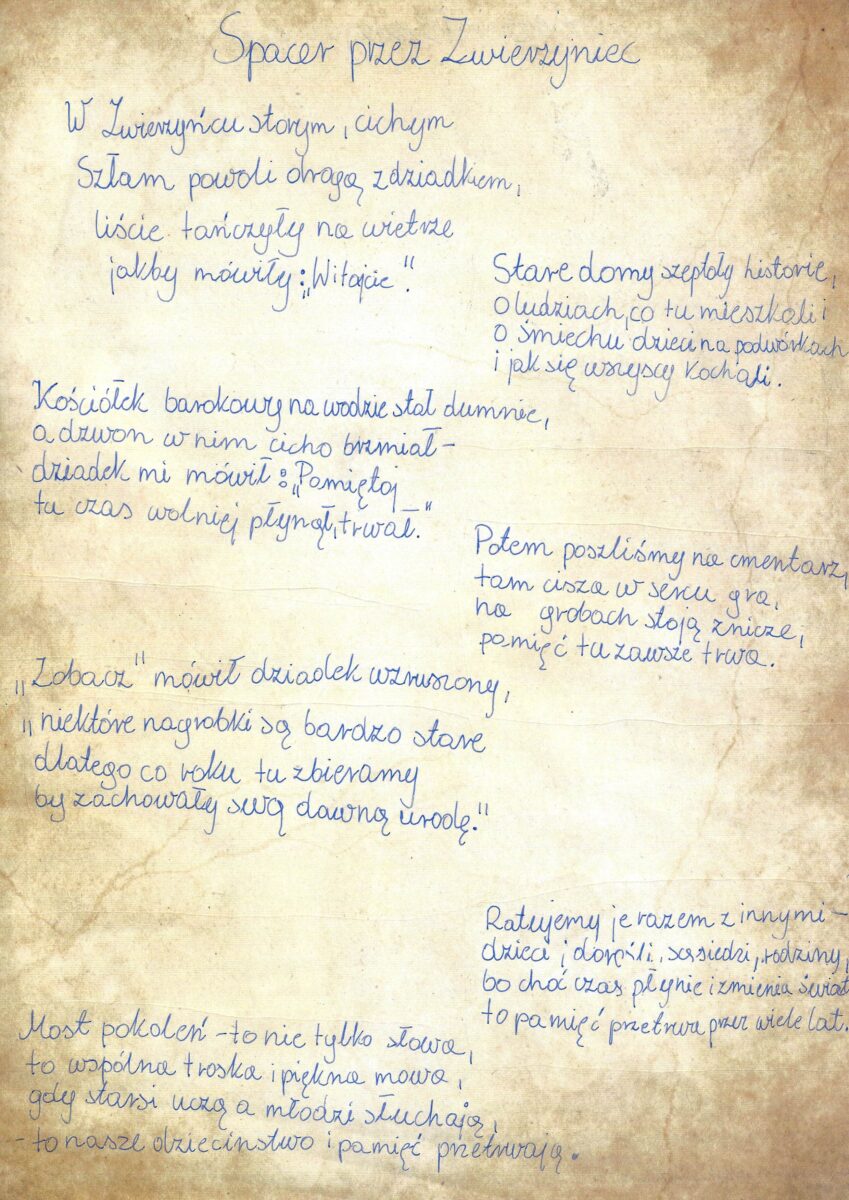 Spacer przez Zwierzyniec
W Zwierzyńcu starym, cichym
Szłam powoli drogą z dziadkiem,
liście tańczyły na wietrze
jakby mówiły: „Witajcie".
Stare domy szeptały historie,
o ludziach, co tu mieszkali i
o śmiechu dzieci na podwórkach
i jak się wszyscy kochali.
Kościółek barokowy na wodzie stał dumnie,
a dzwon w nim cicho brzmiał –
dziadek mi mówił: „Pamiętaj
tu czas wolniej płynął, trwał."
Potem poszliśmy na cmentarz,
tam cisza w sercu gra,
na grobach stoją znicze,
pamięć tu zawsze trwa.
„Zobacz" mówił dziadek wzruszony,
„niektóre nagrobki są bardzo stare
dlatego co roku tu zbieramy
by zachowały swą dawną urodę."
Ratujemy je razem z innymi –
dzieci i dorośli, sąsiedzi, rodziny,
bo choć czas płynie i zmienia świat
to pamięć przetrwa przez wiele lat.
Most pokoleń – to nie tylko słowa,
to wspólna troska i piękna mowa,
gdy starsi uczą a młodzi słuchają,
– to nasze dziecinstwo i pamięć przetrwają.